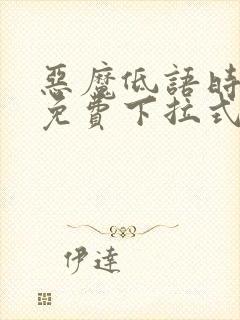 惡魔低語時
免費下拉式
伊達